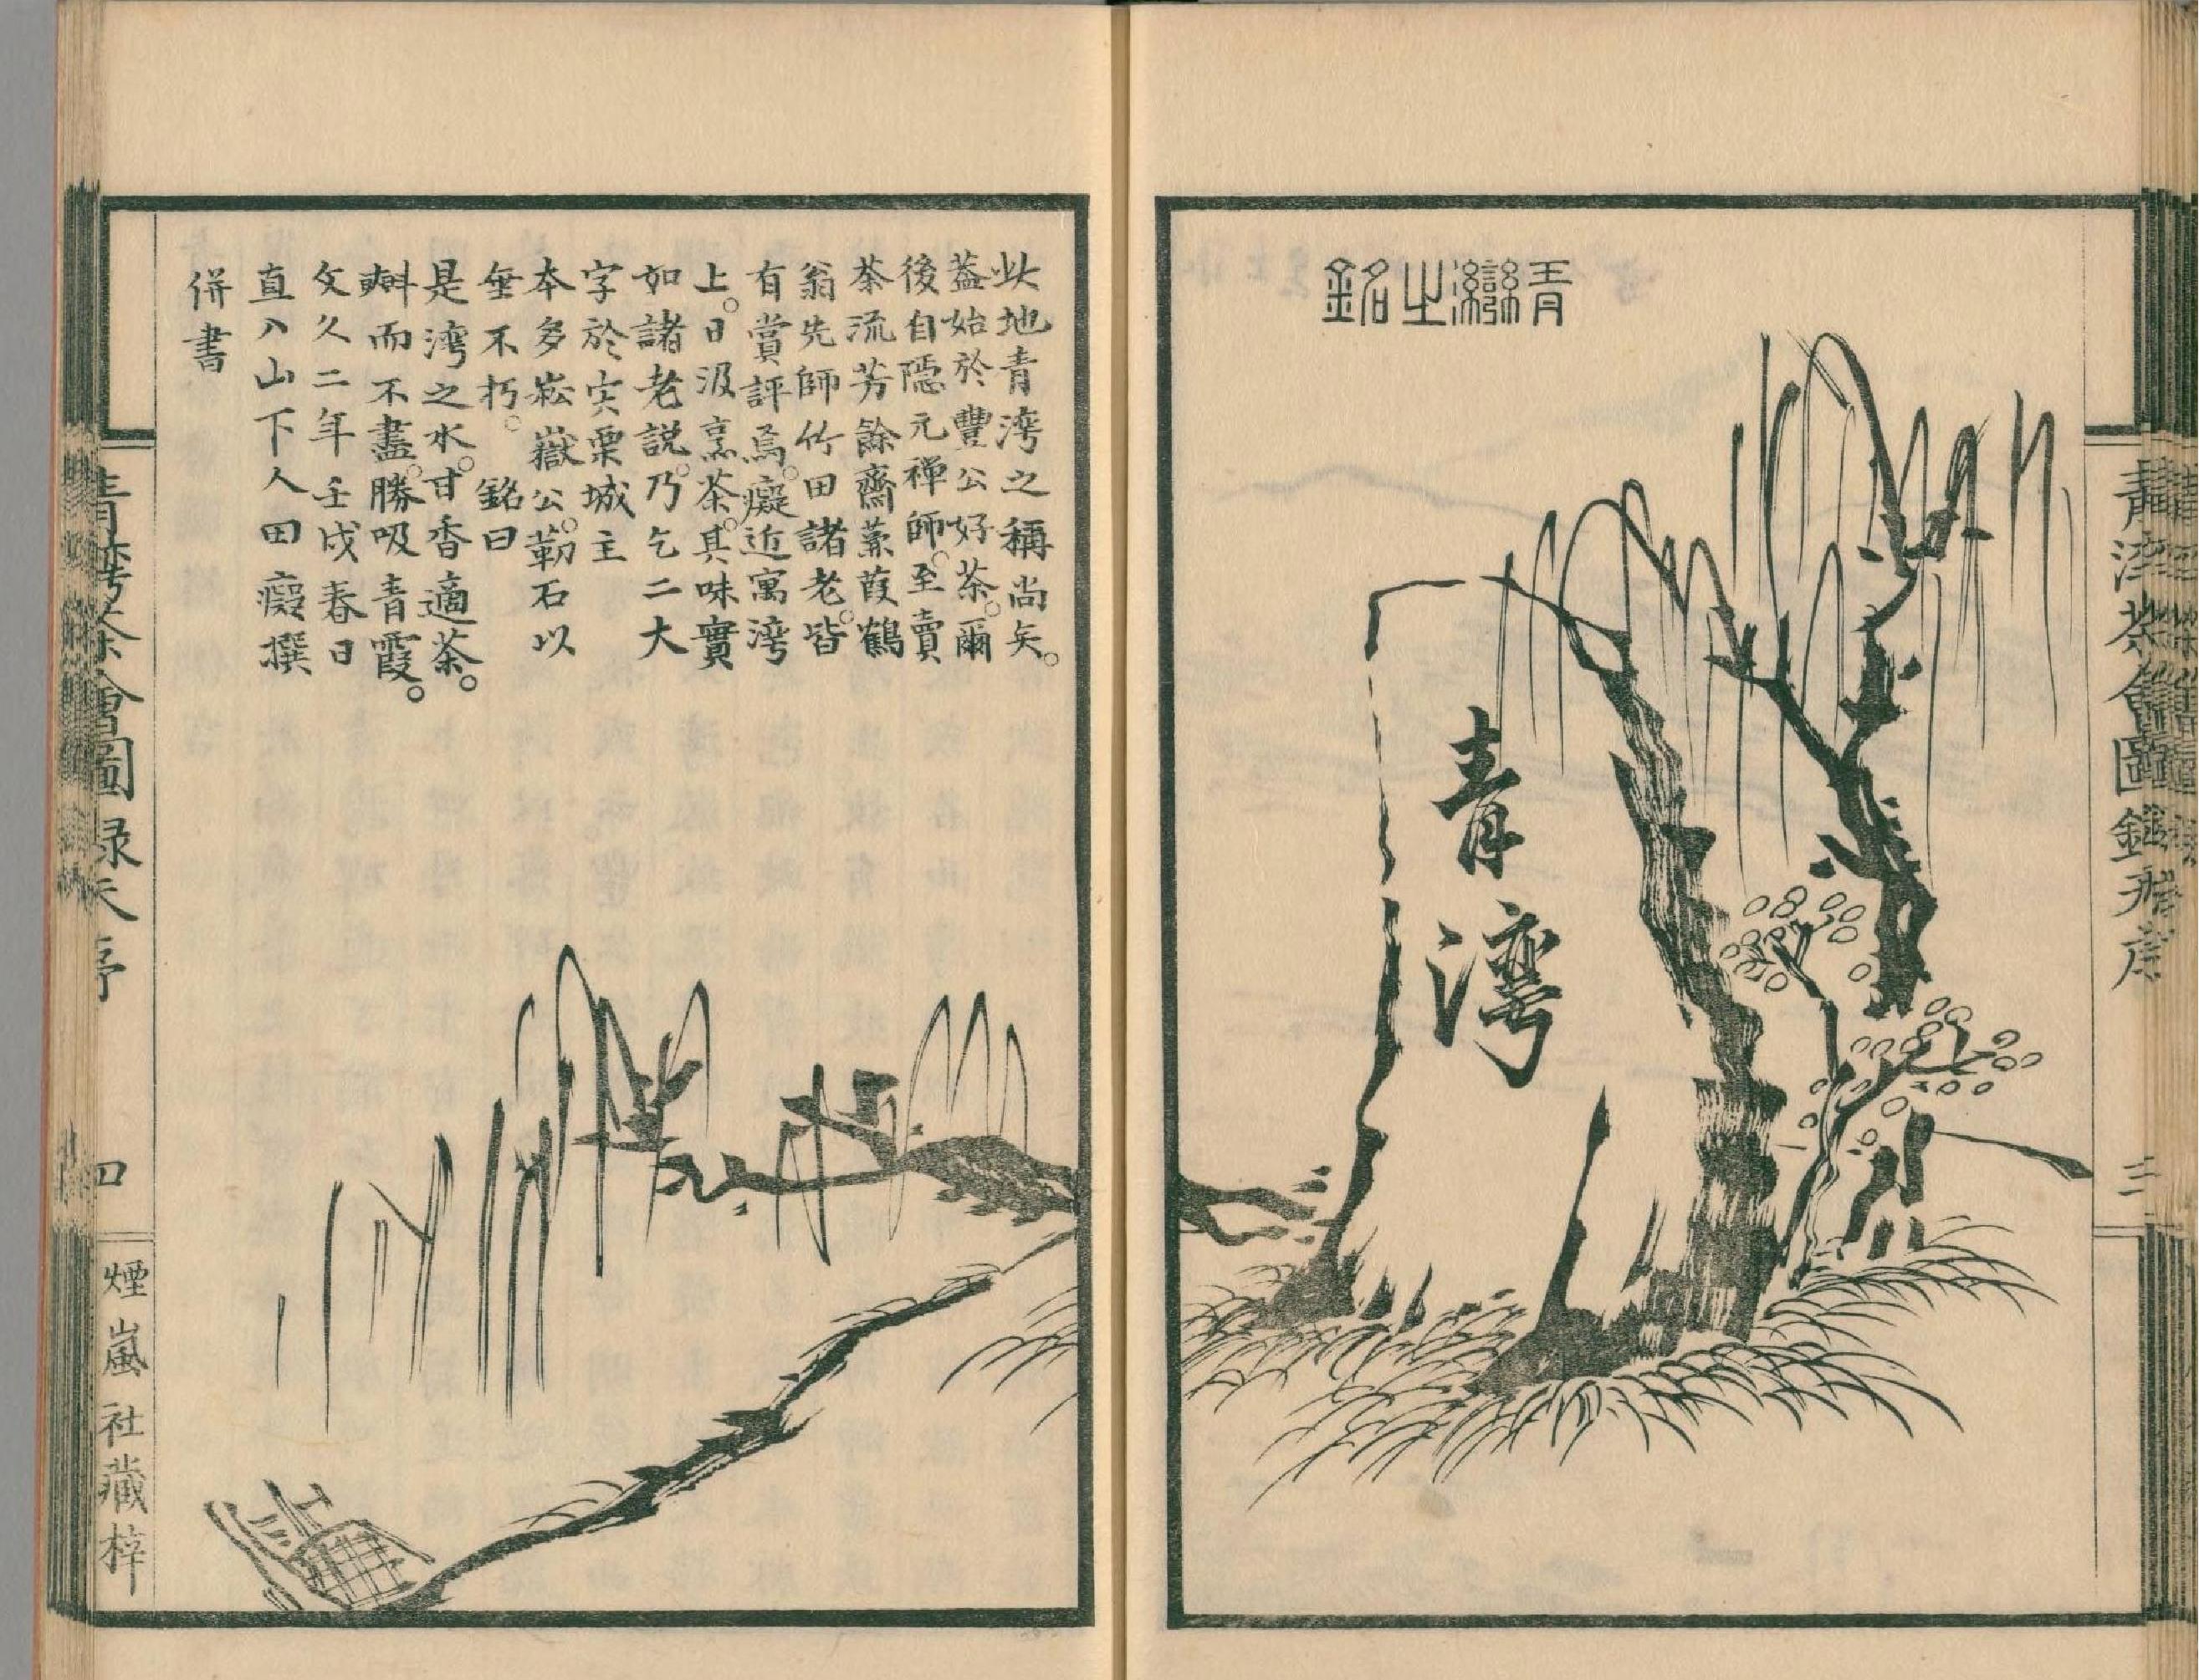 青灣茶會圖錄天序
三
青灣之銘
青灣
此地青湾之稱尚矣。
蓋始於豐公好茶。爾
後自隱元禅師。至賣
茶流芳餘齋蒹葭鶴
翁先師竹田諸老。皆
有賞評焉。癡近寓湾
上。日汲烹茶。其味實
如諸老說。乃乞二大
字於宍粟城主
本多崧嶽公。勒石以
垂不朽。銘曰
是湾之水。甘香適茶。
𣂏而不盡。勝吸青霞。
文久二年壬戌春日
直入山下人田癡撰
併書
青灣茶會圖録天序
四
煙嵐社藏梓